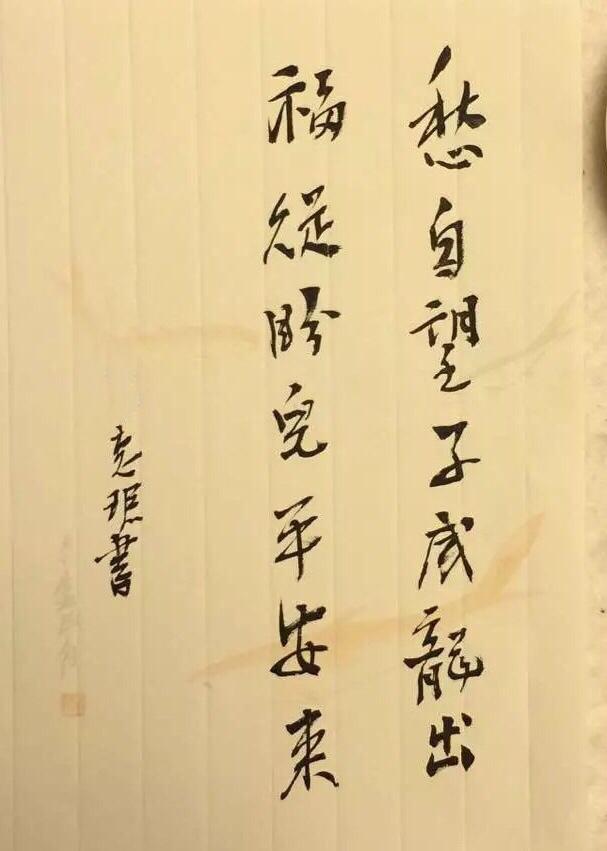 愁自望子成龍出
福從盼兒平安来
書